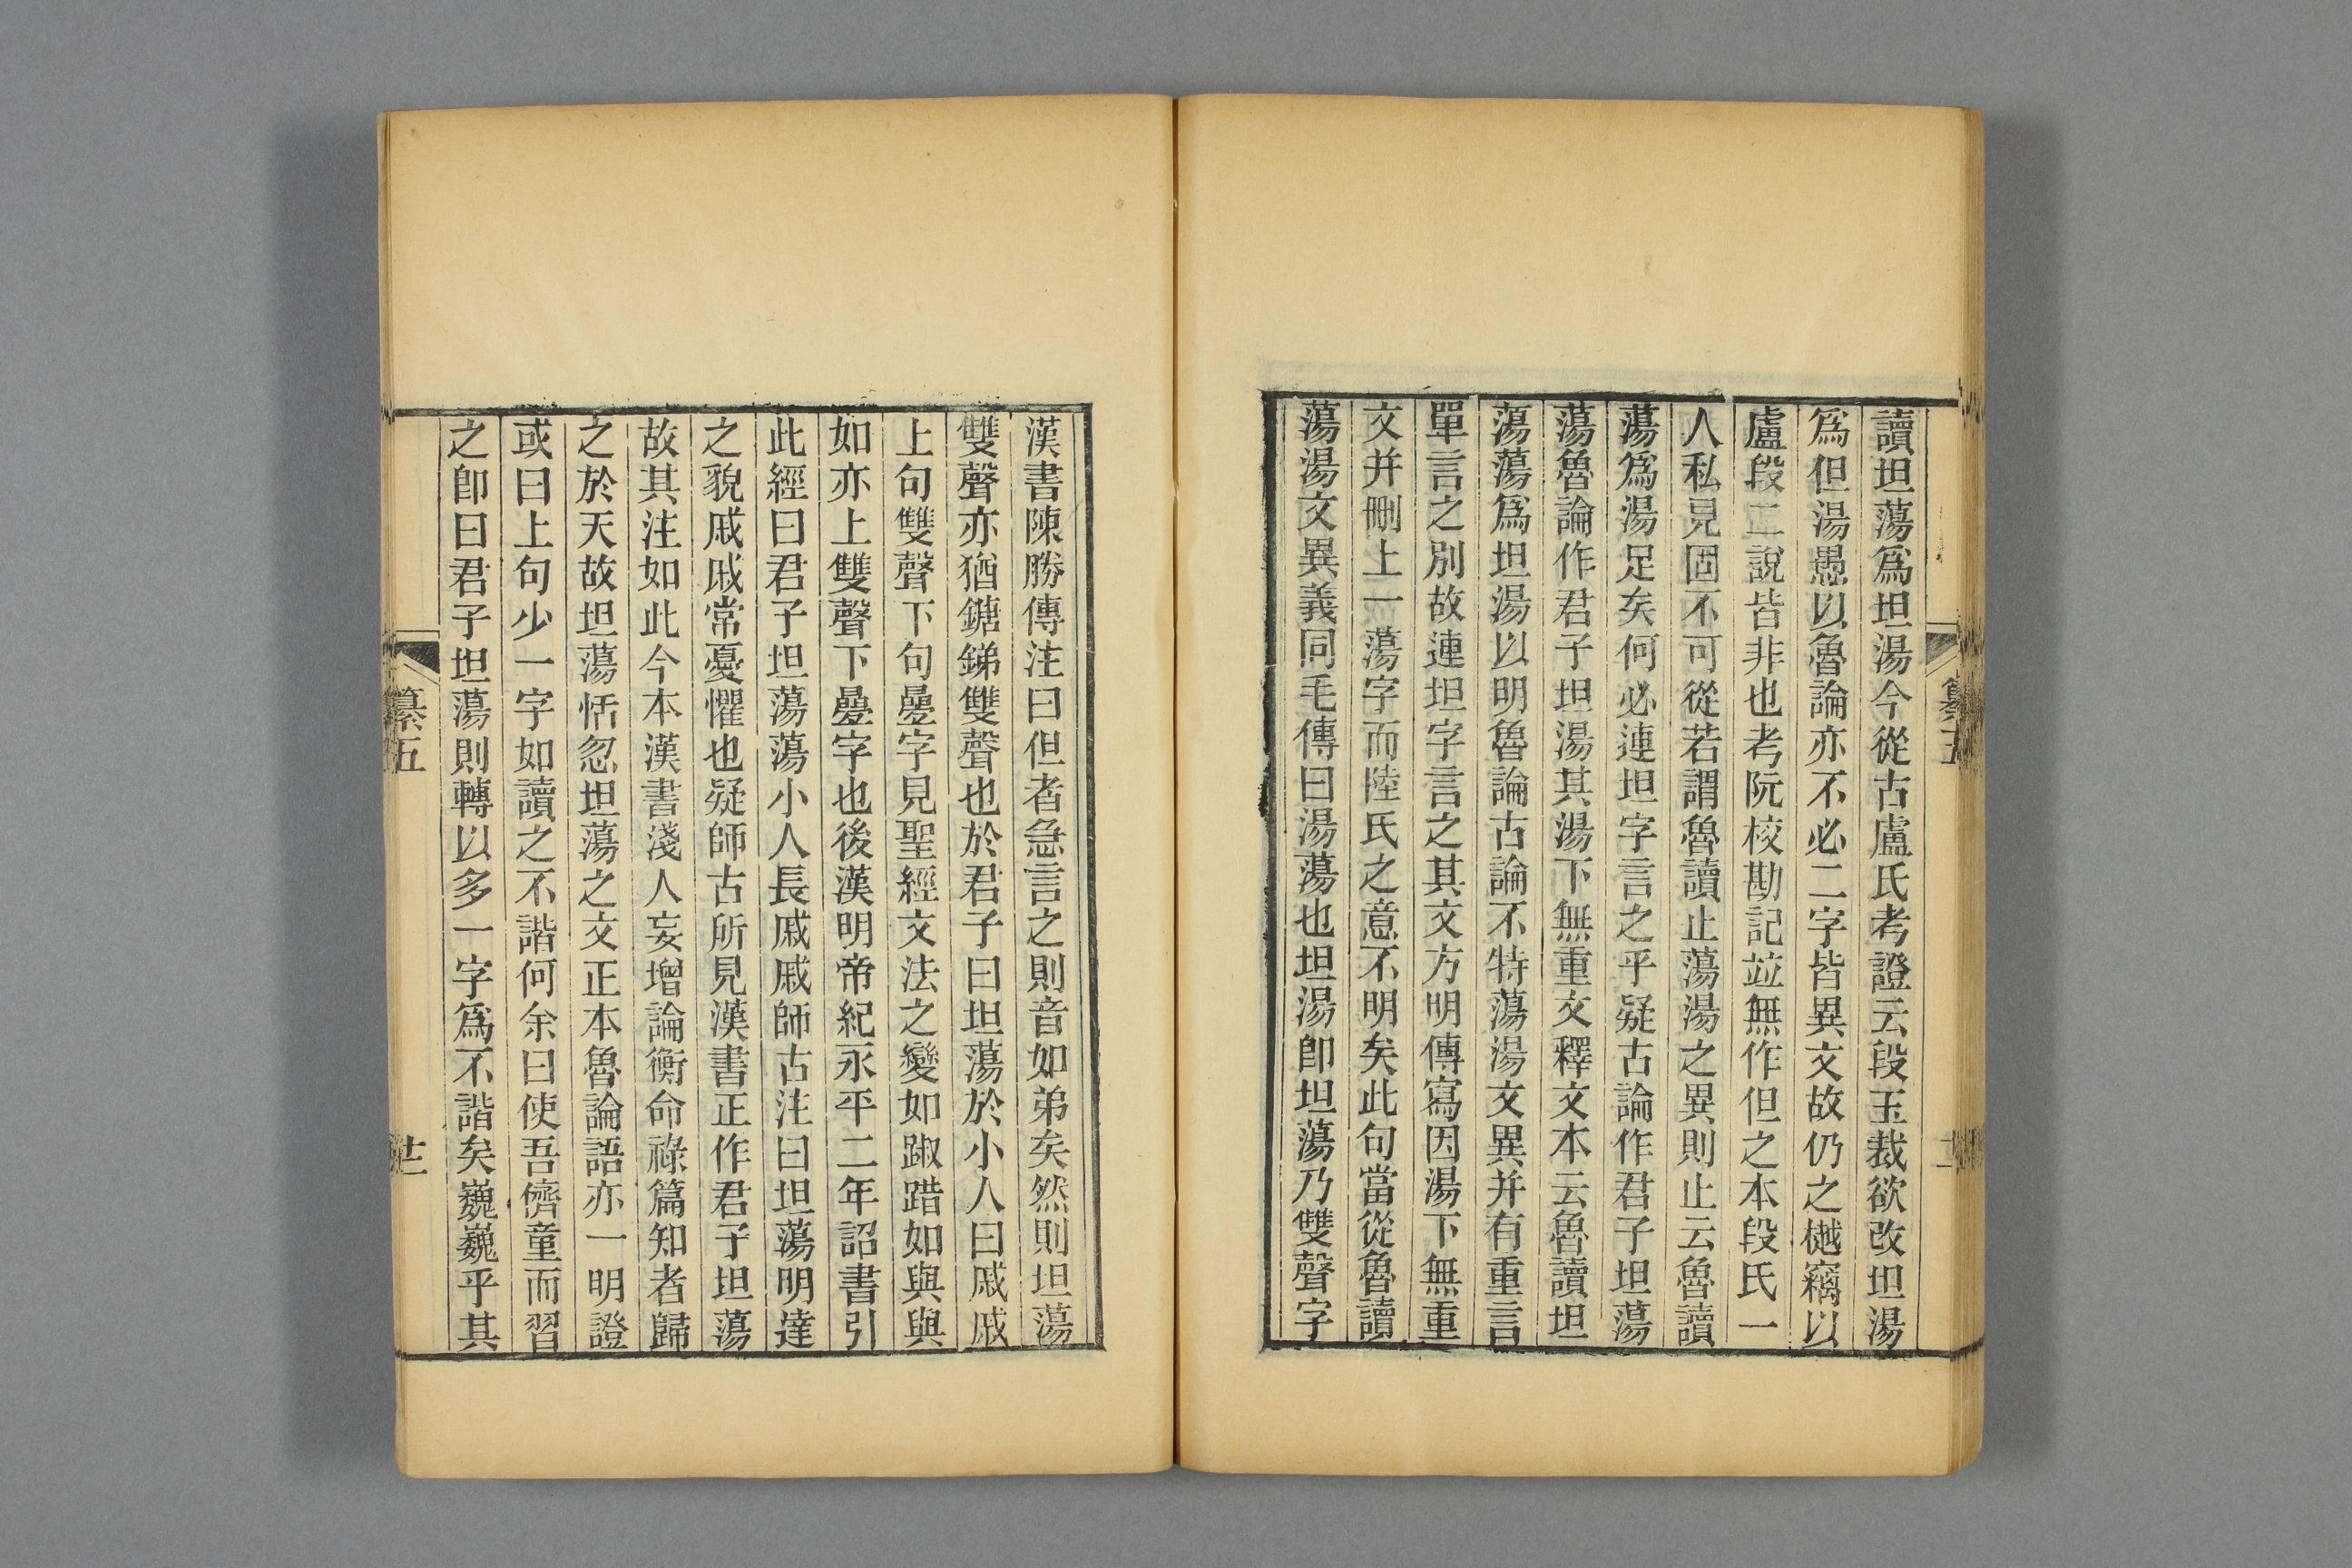 讀坦蕩爲坦湯今從古盧氏考證云段玉裁欲改坦湯
爲但湯愚以魯論亦不必二字皆異文故仍之樾竊以
盧段二說皆非也考阮校勘記竝無作但之本段氏一
人私見固不可從若謂魯讀止蕩湯之異則止云魯讀
蕩爲湯足矣何必連坦字言之乎疑古論作君子坦蕩
蕩魯論作君子坦湯其湯下無重文釋文本云魯讀坦
蕩蕩爲坦湯以明魯論古論不特蕩湯文異并有重言
單言之別故連坦字言之其文方明傳寫因湯下無重
文并刪上一蕩字而陸氏之意不明矣此句當從魯讀
蕩湯文異義同毛傳曰湯蕩也坦湯卽坦蕩乃雙聲字
漢書陳勝傳注曰但者急言之則音如弟矣然則坦蕩
雙聲亦猶鎕銻雙聲也於君子曰坦蕩於小人曰戚戚
上句雙聲下句疊字見聖經文法之變如踧踖如與與
如亦上雙聲下疊字也後漢明帝紀永平二年詔書引
此經曰君子坦蕩蕩小人長戚戚師古注曰坦蕩明達
之貌戚戚常憂懼也疑師古所見漢書正作君子坦蕩
故其注如此今本漢書淺人妄增論衡命祿篇知者歸
之於天故坦蕩恬忽坦蕩之文正本魯論語亦一明證
或曰上句少一字如讀之不諧何余曰使吾儕童而習
之卽曰君子坦蕩則轉以多一字爲不諧矣巍巍乎其
纂五